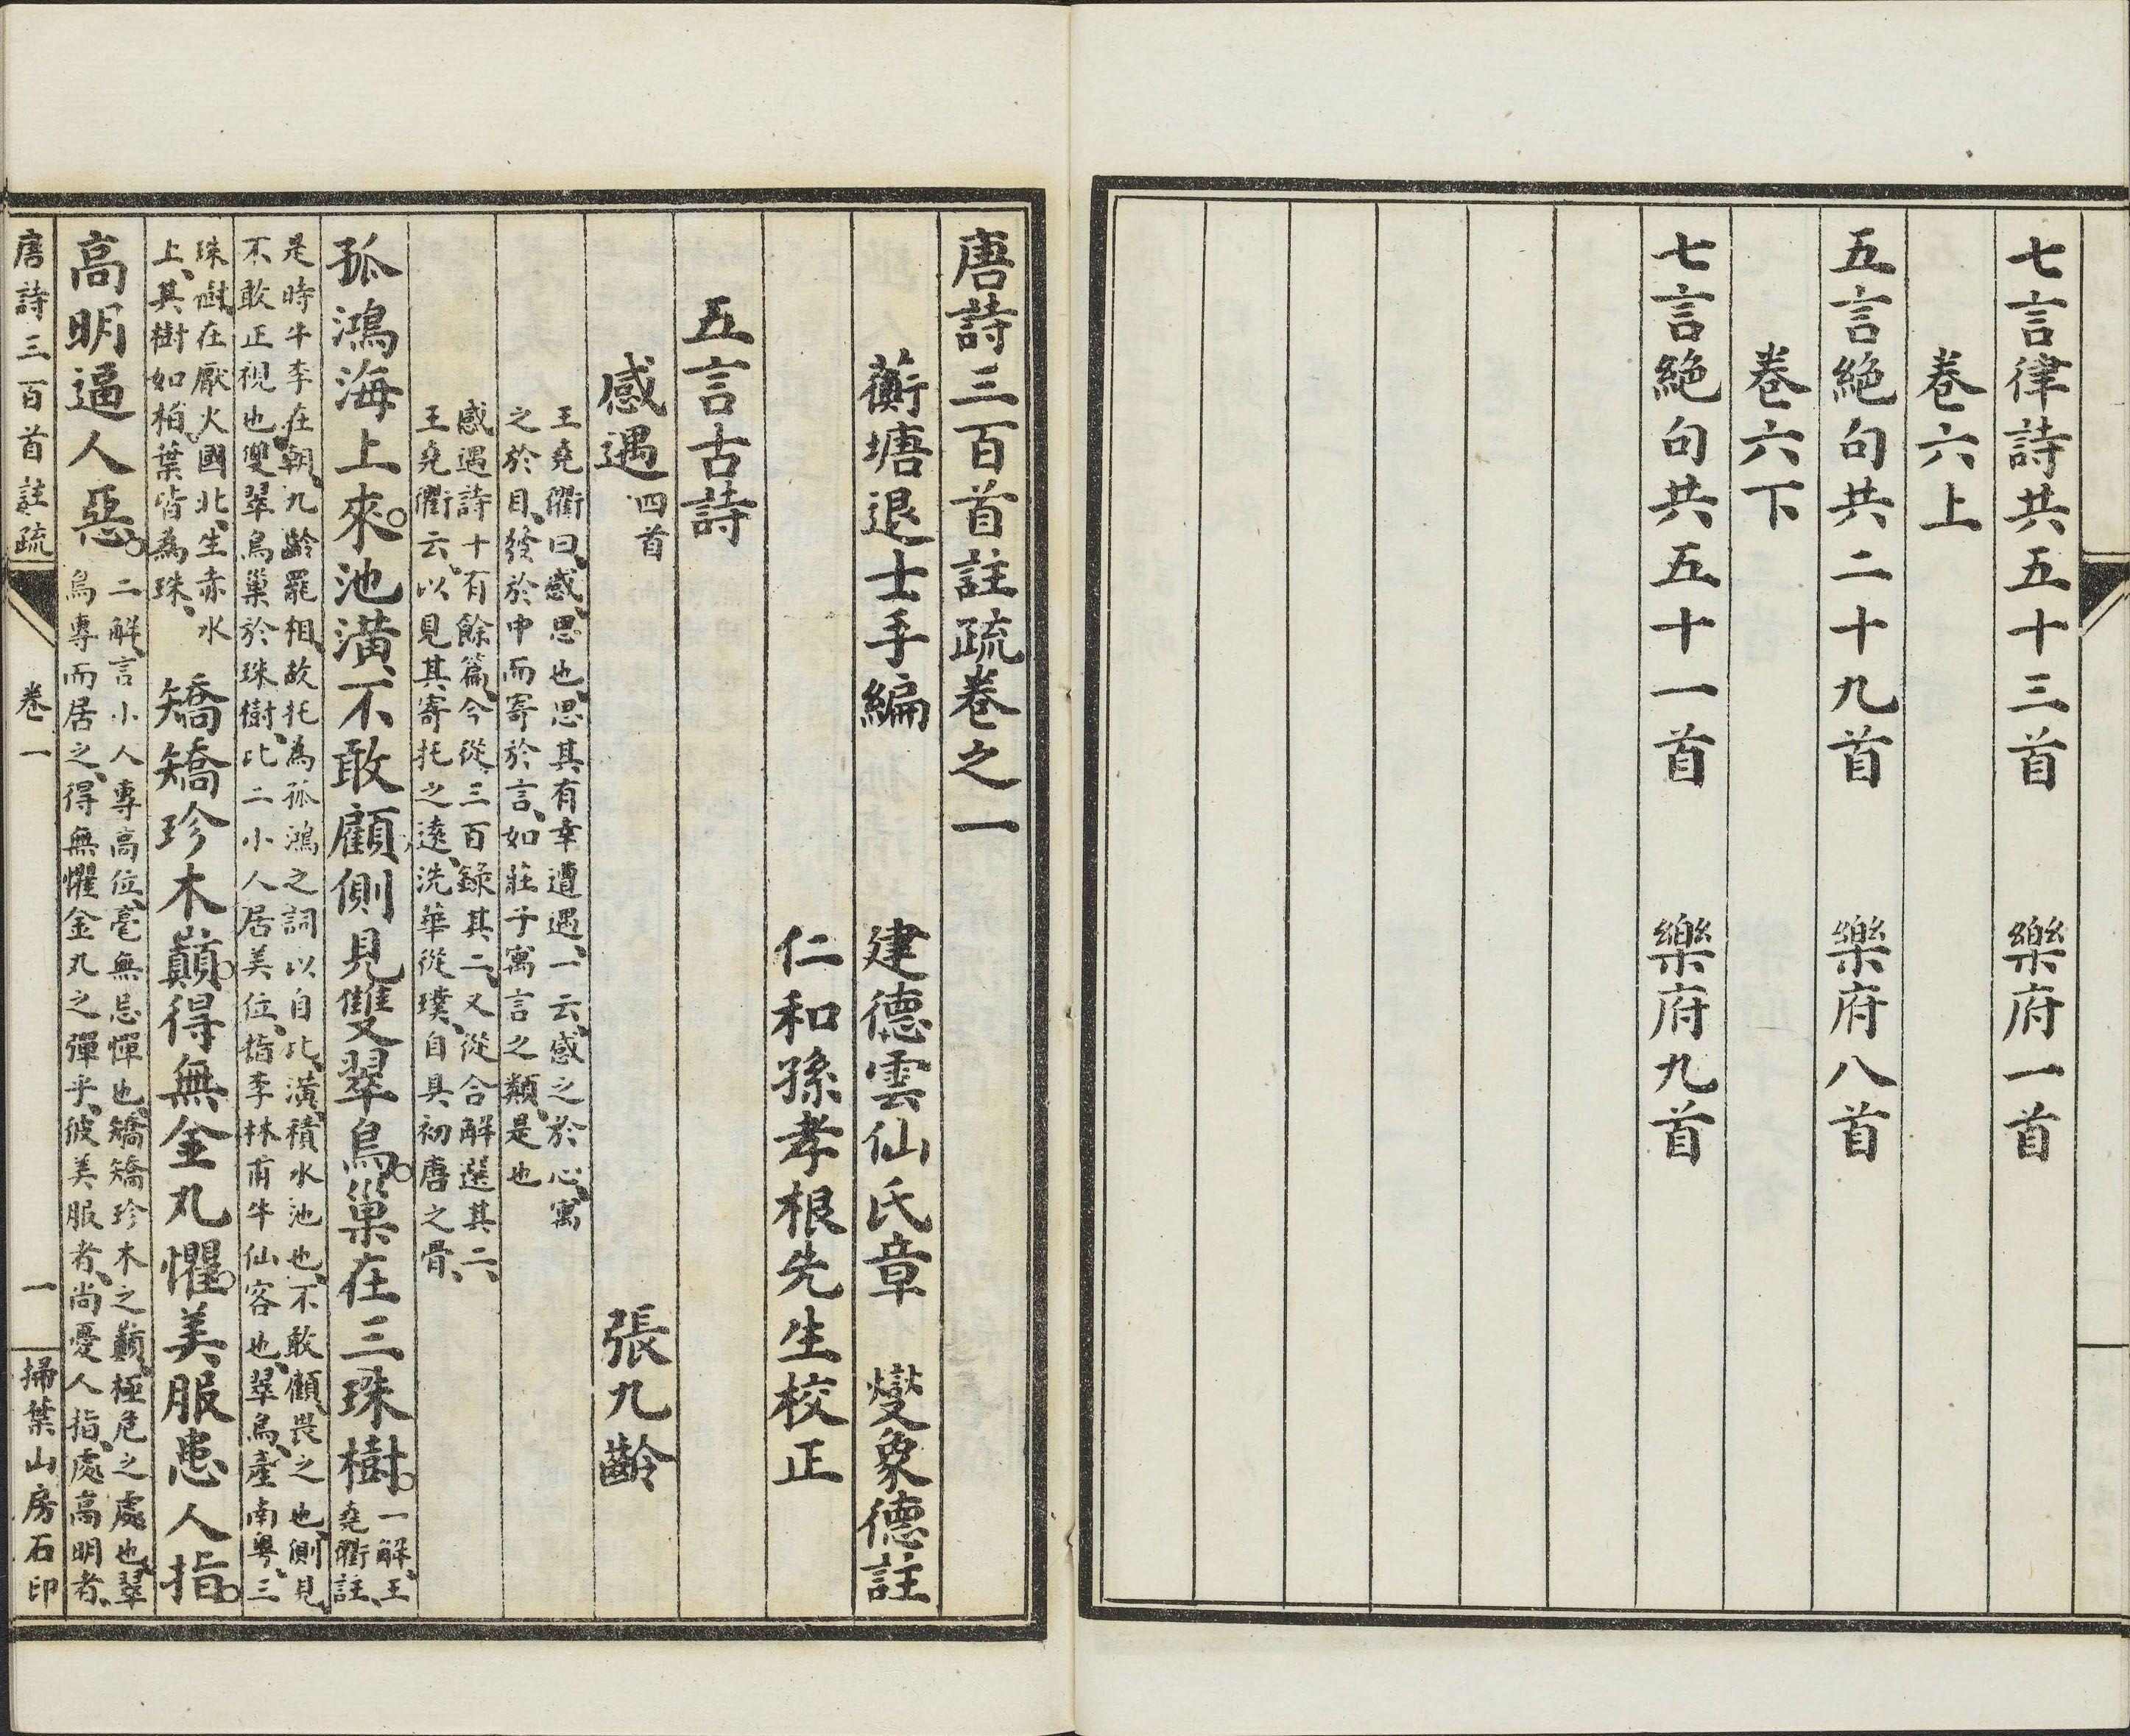 七言律詩共五十三首　樂府一首
卷六上
五言絕句共二十九首　樂府八首
卷六下
七言絕句共五十一首　樂府九首
唐詩三百首註疏卷之一
蘅塘退士手編　建德雲仙氏章　燮象德註
仁和孫孝根先生校正
五言古詩
感遇四首　張九齡
王堯衢曰、感、思也、思其有幸遭遇、一云、感之於心、寓
之於目、發於中而寄於言、如莊子寓言之類、是也
感遇詩十有餘篇、今從三百錄其二、又從合解選其二、
王堯衢云、以見其寄托之遠、洗華從璞、自具初唐之骨、
孤鴻海上來。池潢不敢顧側見雙翠鳥。巢在三珠樹。一解、王
堯衢註、
是時牛李在朝、九齡罷相、故托為孤鴻之詞以自比、潢、積水池也、不敢顧、畏之也、側見、
不敢正視也、雙翠鳥巢於珠樹、比二小人居美位、指李林甫牛仙客也、翠鳥、產南粵、三
珠樹、在厭火國北、生赤水
上、其樹如柏、葉皆為珠、
矯矯珍木巔。得無金丸懼。美服患人指。
高明逼人惡。二解、言小人專高位、毫無忌憚也、矯矯珍木之巔、極危之處也、翠
鳥專而居之、得無懼金丸之彈乎、彼美服者、尚憂人指、處高明者、
唐詩三百首註疏　卷一　一　掃葉山房石印